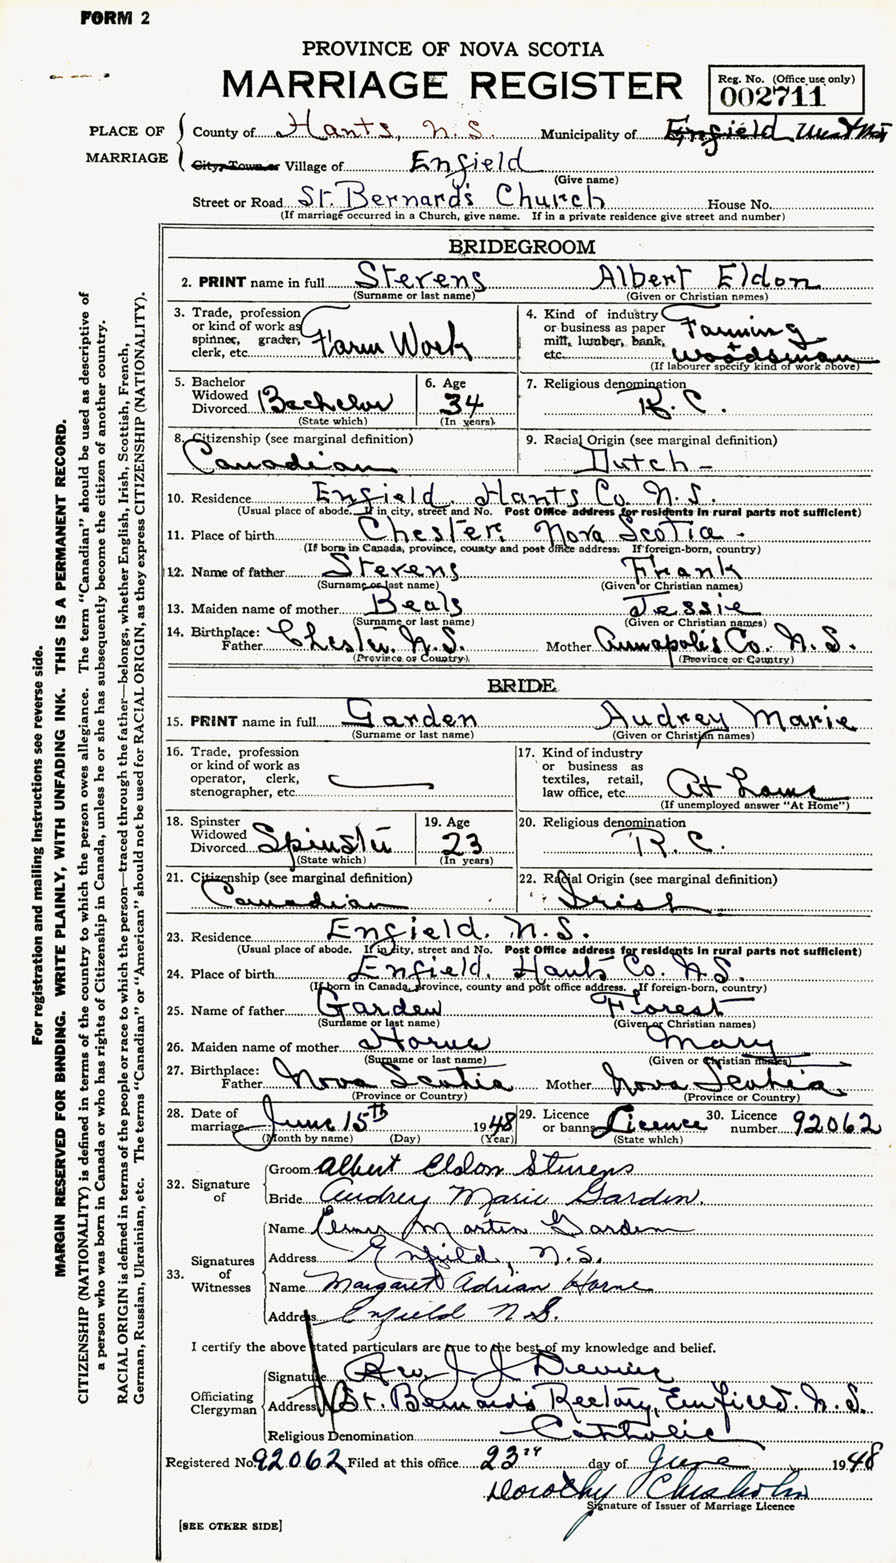 FORM 2
PROVINCE OF NOVA SCOTIA
MARRIAGE REGISTER
Reg. No. (Office use only)
002711
PLACE OF MARRIAGE
County of Hants, N.S. Municipality of Enfield
City, Town or Village of Enfield
(Give name)
Street or Road St. Bernard's Church House No.
(If marriage occurred in a Church, give name. If in a private residence give street and number)
BRIDEGROOM
2. PRINT name in full Stevens Albert Eldon
(Surname or last name) (Given or Christian names)
3. Trade, profession or kind of work as spinner, grader, clerk, etc. Farm Work
4. Kind of industry or business as paper mill, lumber, bank, etc. Farming + woodsman
(If labourer specify kind of work above)
5. Bachelor Widowed Divorced Bachelor
(State which)
6. Age 34
(In years)
7. Religious denomination R.C.
8. Citizenship (see marginal definition) Canadian
9. Racial Origin (see marginal definition) Dutch -
10. Residence Enfield Hants Co. N.S.
(Usual place of abode. If in city, street and No. Post Office address for residents in rural parts not sufficient)
11. Place of birth Chester, Nova Scotia -
(If born in Canada, province, county and post office address. If foreign-born, country)
12. Name of father Stevens Frank
(Surname or last name) (Given or Christian names)
13. Maiden name of mother Beals Jessie
(Surname or last name) (Given or Christian names)
14. Birthplace: Father Chester, N.S. Mother Annapolis Co. N.S.
(Province or Country) (Province or Country)
BRIDE
15. PRINT name in full Garden Audrey Marie
(Surname or last name) (Given or Christian names)
16. Trade, profession or kind of work as operator, clerk, stenographer, etc.
17. Kind of industry or business as textiles, retail, law office, etc. At Home
(If unemployed answer "At Home")
18. Spinster Widowed Divorced Spinster
(State which)
19. Age 23
(In years)
20. Religious denomination R.C.
21. Citizenship (see marginal definition) Canadian
22. Racial Origin (see marginal definition) Irish
23. Residence Enfield. N.S.
(Usual place of abode. If in city, street and No. Post Office address for residents in rural parts not sufficient)
24. Place of birth Enfield. Hants Co. N.S.
(If born in Canada, province, county and post office address. If foreign-born, country)
25. Name of father Garden Forest
(Surname or last name) (Given or Christian names)
26. Maiden name of mother Horne Mary
(Surname or last name) (Given or Christian names)
27. Birthplace: Father Nova Scotia Mother Nova Scotia
(Province or Country) (Province or Country)
28. Date of marriage June 15th 1948
(Month by name) (Day) (Year)
29. Licence or banns Licence
(State which)
30. Licence number 92062
32. Signature of
Groom Albert Eldon Stevens
Bride Audrey Marie Garden.
33. Signatures of Witnesses
Name Elmer Martin Garden
Address Enfield, N.S.
Name Margaret Adrian Horne
Address Enfield N.S.
I certify the above stated particulars are true to the best of my knowledge and belief.
Officiating Clergyman
Signature Rev. J. J.
Address St. Bernard's Rectory, Enfield. N.S.
Religious Denomination Catholic
Registered No. 92062 Filed at this office 23rd day of June 1948
Dorothy Chisholm
Signature of Issuer of Marriage Licence
[SEE OTHER SIDE]
For registration and mailing instructions see reverse side.
MARGIN RESERVED FOR BINDING. WRITE PLAINLY, WITH UNFADING INK. THIS IS A PERMANENT RECORD.
CITIZENSHIP (NATIONALITY) is defined in terms of the country to which the person owes allegiance. The term "Canadian" should be used as descriptive of
a person who was born in Canada or who has rights of Citizenship in Canada, unless he or she has subsequently become the citizen of another country.
RACIAL ORIGIN is defined in terms of the people or race to which the person—traced through the father—belongs, whether English, Irish, Scottish, French,
German, Russian, Ukrainian, etc. The terms "Canadian" or "American" should not be used for RACIAL ORIGIN, as they express CITIZENSHIP (NATIONALITY).